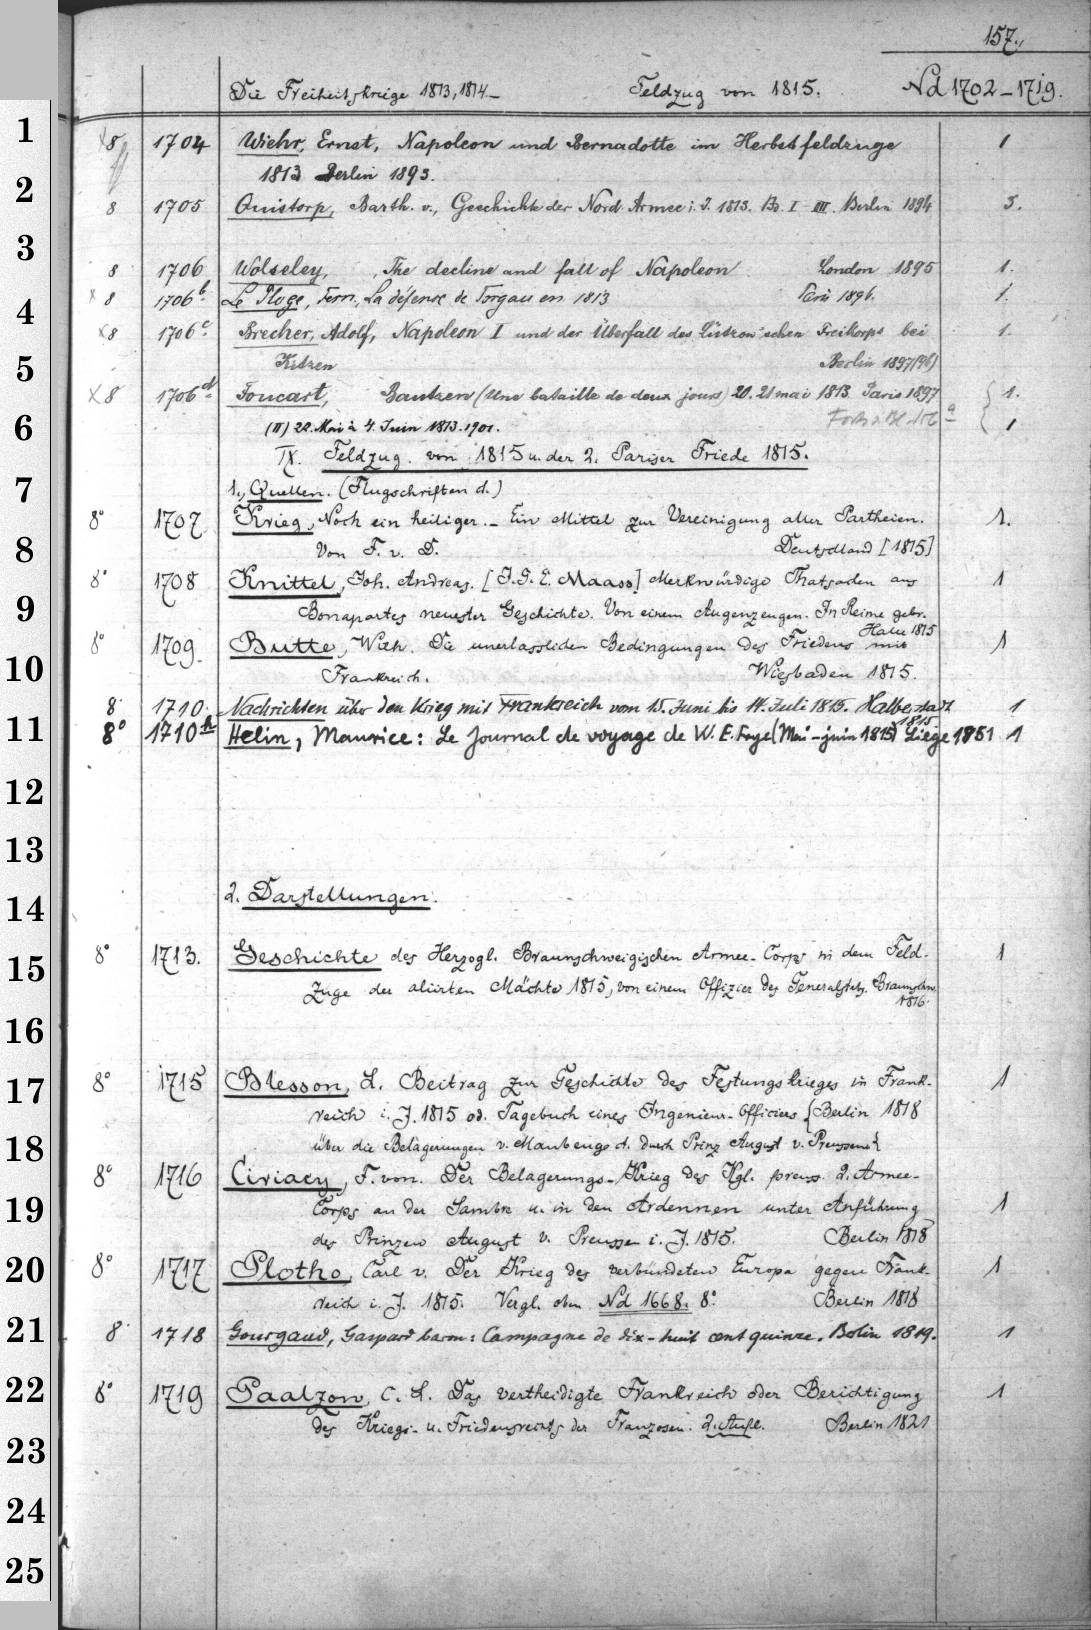 157.
Die Freiheitskriege 1813, 1814. Feldzug von 1815. Nd 1702-1719.
1
x8 1704 Wiehr, Ernst, Napoleon und Bernadotte im Herbstfeldzuge 1
1813 Berlin 1893.
2
8 1705 Quistorp, Barth. v., Geschichte der Nord Armee i. J. 1813. Bd. I-III. Berlin 1894 3.
3
8 1706 Wolseley, The decline and fall of Napoleon London 1895 1.
4
x 8 1706b. Le Ploge, Fern., La défense de Torgau en 1813 Paris 1896. 1.
x8 1706c. Brecher, Adolf, Napoleon I und der Überfall des Lützow'schen Freikorps bei 1.
5
Kitzen Berlin 1897(96)
x8 1706d. Foucart, Bautzen (une bataille de deux jours) 20. 21 mai 1813 Paris 1897 1.
6
(II) 22. Mai à 4. Juin 1813. 1901. 1
IX. Feldzug von 1815 u. der 2. Pariser Friede 1815.
7
1., Quellen. (Flugschriften d.)
8° 1707 Krieg, Noch ein heiliger. – Ein Mittel zur Vereinigung aller Partheien. 1.
8
Von F. v. D. Deutschland [1815]
8° 1708 Knittel, Joh. Andreas. [J. G. E. Maass] Merkwürdige Thatsaden aus 1
9
Bonapartes neuester Geschichte. Von einem Augenzeugen. In Reime gebr.
Halle 1815
8° 1709. Butte, Wilh. Die unerlasslichen Bedingungen des Friedens mit 1
10
Frankreich. Wiesbaden 1815.
8. 1710. Nachrichten über den Krieg mit Frankreich vom 15. Juni bis 14. Juli 1815. Halberstadt 1
1815
11
8° 1710h Helin, Maurice: Le Journal de voyage de W. E. Frye (Mai-juin 1815) Liège 1951 1
12
13
14
2. Darstellungen.
15
8° 1713. Geschichte des Herzogl. Braunschweigischen Armee-Corps in dem Feld- 1
zuge der aliirten Mächte 1815, von einem Offizier des Generalstabs. Braunschw.
1816.
16
17
8° 1715 Blesson, L. Beitrag zur Geschichte des Festungskrieges in Frank- 1
reich i. J. 1815 od. Tagebuch eines Ingenieur-Officiers {Berlin 1818
18
über die Belagerungen v. Maubeuge d. durch Prinz August v. Preussen}
8° 1716 Ciriacy, F. von. Der Belagerungs-Krieg des Kgl. preuss. 2. Armee-
19
Corps an der Sambre u. in den Ardennen unter Anführung 1
des Prinzen August v. Preussen i. J. 1815. Berlin 1818
20
8° 1717 Plotho, Carl v. Der Krieg des verbündeten Europa gegen Frank- 1
reich i. J. 1815. Vergl. oben Nd 1668. 8° Berlin 1818
21
8. 1718 Gourgaud, Gaspard baron: Campagne de dix-huit cent quinze. Berlin 1819. 1
22
8° 1719 Paalzow, C. L. Das vertheidigte Frankreich oder Berichtigung 1
des Kriegs- u. Friedensrechts der Franzosen. 2. Aufl. Berlin 1821
23
24
25